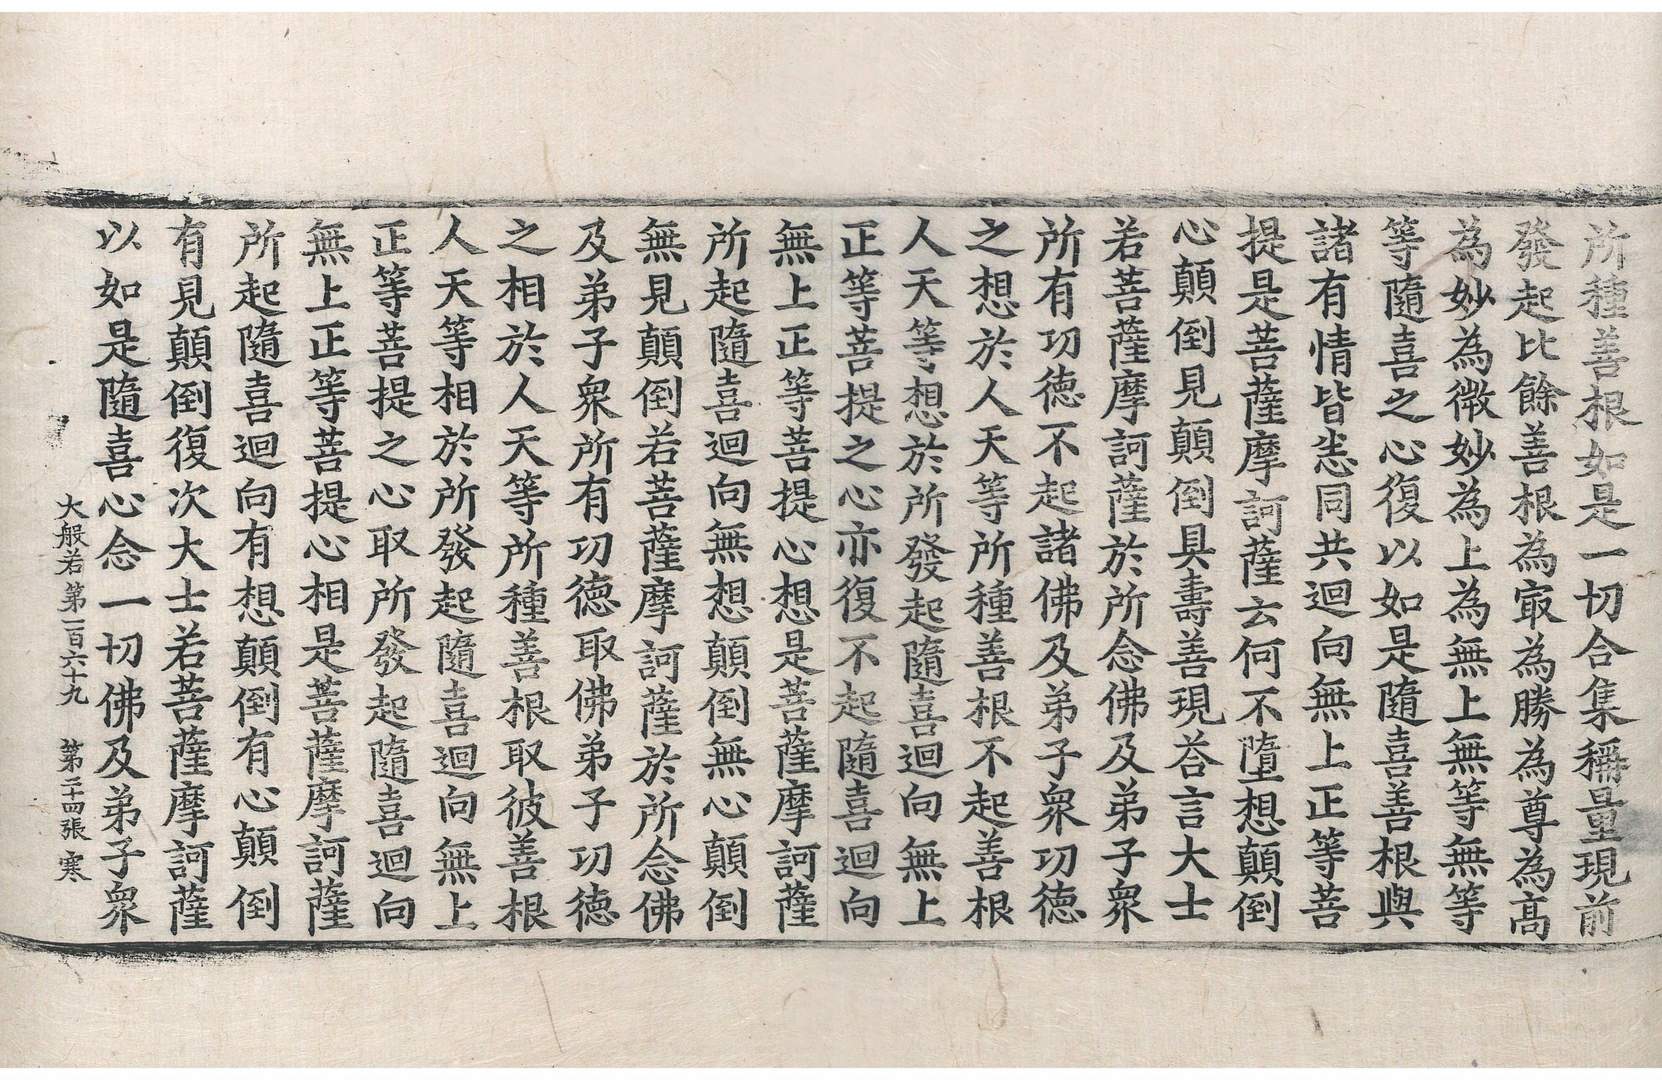 所種善根如是一切合集稱量現前
發起比餘善根為㝡為勝為尊為高
為妙為微妙為上為無上無等無等
等隨喜之心復以如是隨喜善根與
諸有情皆悉同共迴向無上正等菩
提是菩薩摩訶薩云何不墮想顛倒
心顛倒見顛倒具壽善現荅言大士
若菩薩摩訶薩於所念佛及弟子衆
所有功德不起諸佛及弟子衆功德
之想於人天等所種善根不起善根
人天等想於所發起隨喜迴向無上
正等菩提之心亦復不起隨喜迴向
無上正等菩提心想是菩薩摩訶薩
所起隨喜迴向無想顛倒無心顛倒
無見顛倒若菩薩摩訶薩於所念佛
及弟子衆所有功德取佛弟子功德
之相於人天等所種善根取彼善根
人天等相於所發起隨喜迴向無上
正等菩提之心取所發起隨喜迴向
無上正等菩提心相是菩薩摩訶薩
所起隨喜迴向有想顛倒有心顛倒
有見顛倒復次大士若菩薩摩訶薩
以如是隨喜心念一切佛及弟子衆
大般若第一百六十九　第二十四張　寒